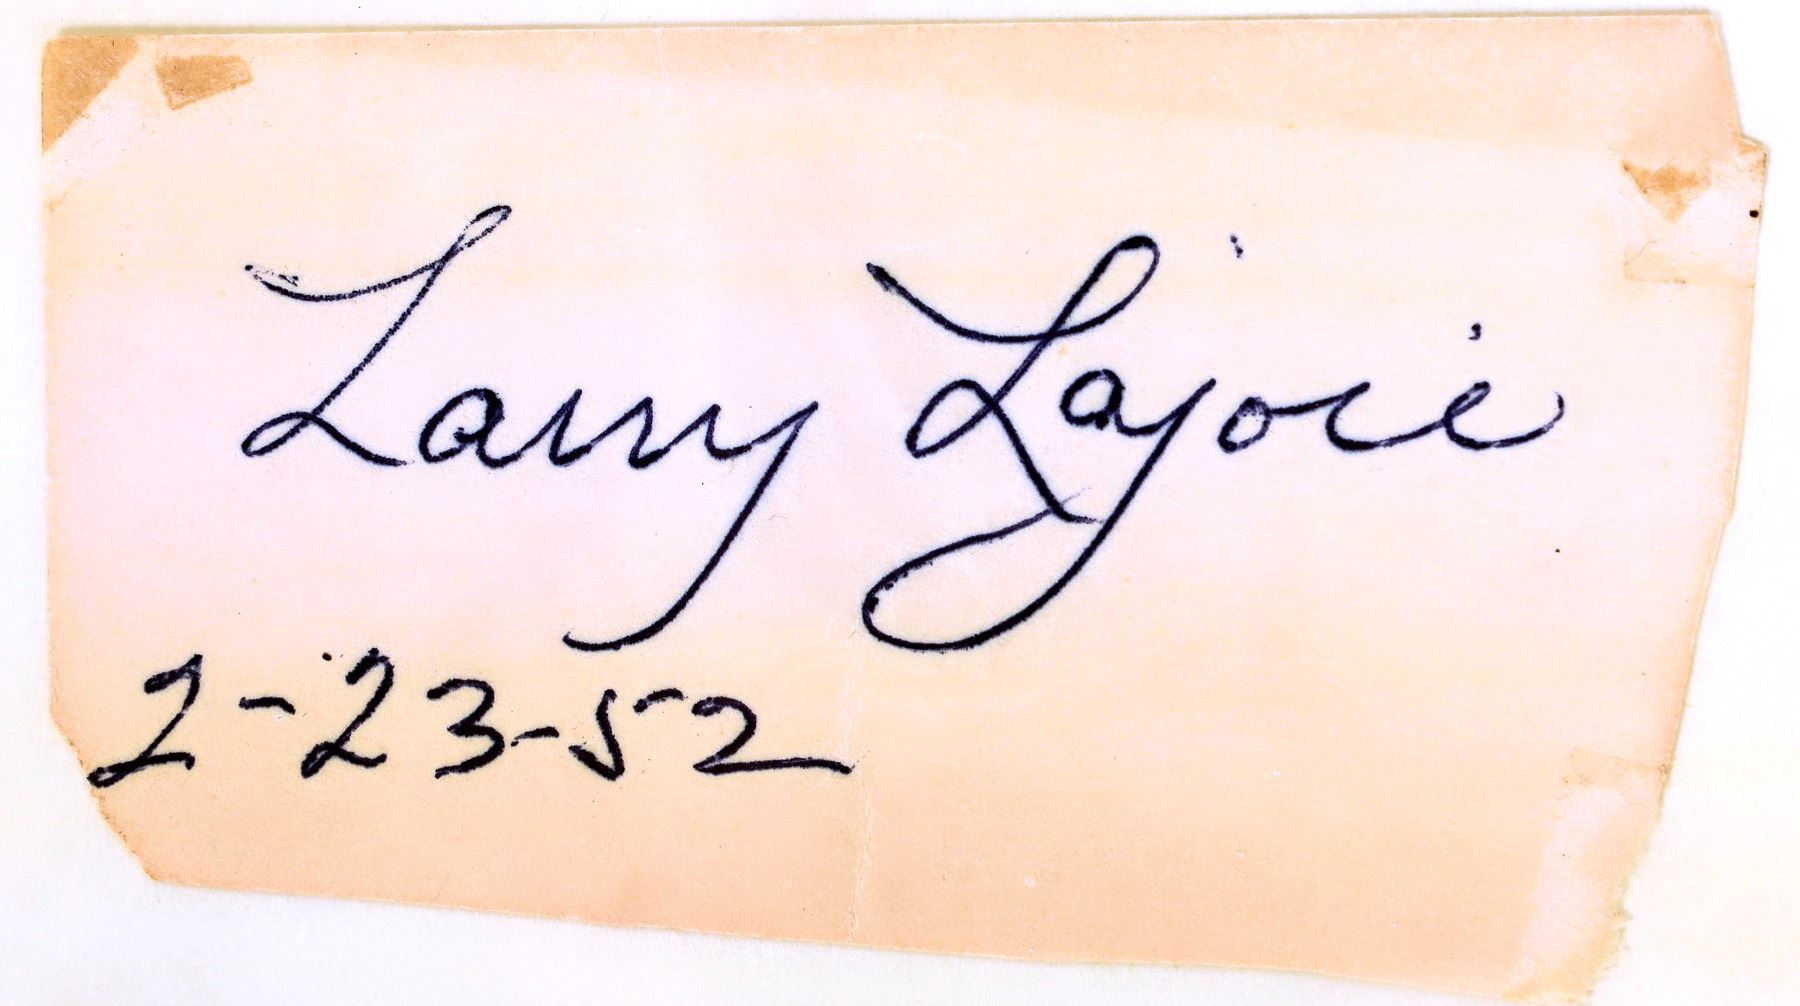 Larry Lajoie
2-23-52